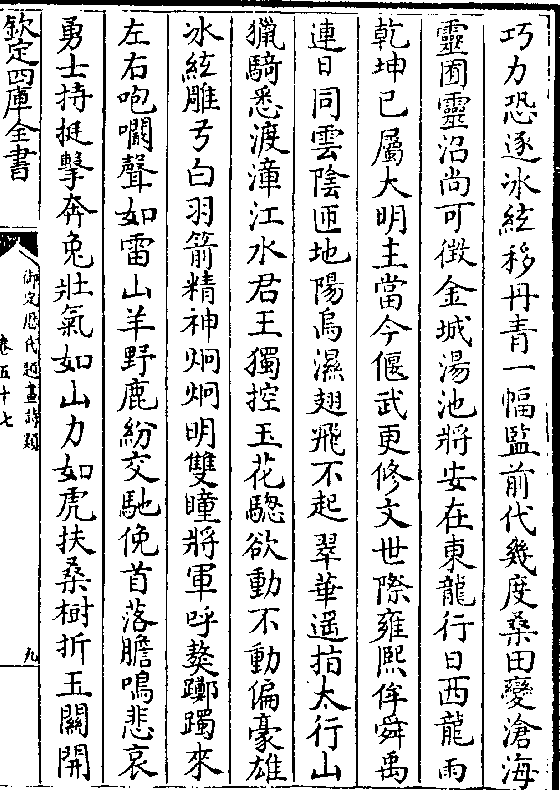 巧力恐逐冰絃移丹青一幅監前代幾度桑田變滄海
靈囿靈沼尚可徴金城湯池將安在東龍行日西龍雨
乾坤已屬大明主當今偃武更修文世際雍熙侔舜禹
連日同雲陰匝地陽烏濕翅飛不起翠華遥指太行山
獵騎悉渡漳江水君王獨控玉花驄欲動不動偏豪雄
冰絃雕弓白羽箭精神炯炯明雙瞳將軍呼獒躑躅來
左右咆㘚聲如雷山羊野鹿紛交馳俛首落膽鳴悲哀
勇士持挺擊奔兔壯氣如山力如虎扶桑樹折玉關開
欽定四庫全書
御定歴代題畫詩類
卷五十七
九